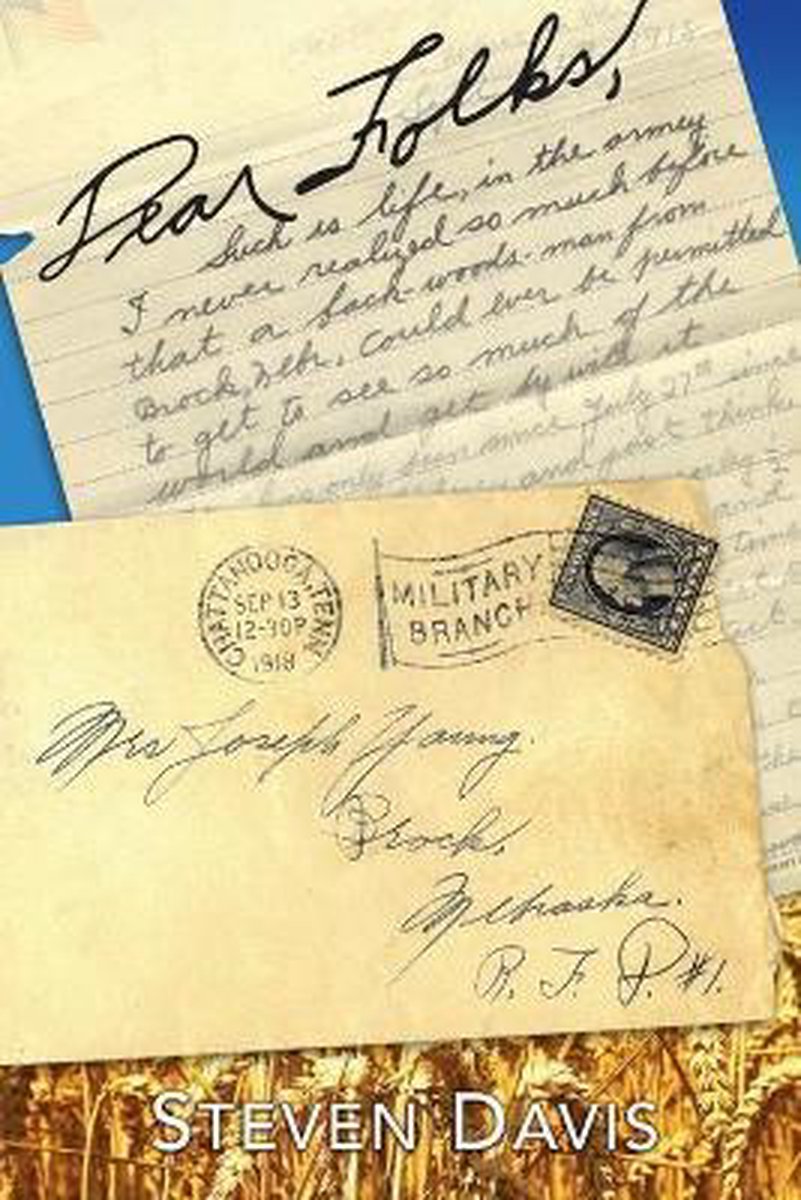 1918
Dear Folks,
Such is life, in the armey
I never realized so much before
that a back-woods-man from
Brock, Nebr, could ever be permitted
to get to see so much of the
world and get by with it
only been since July 27th since
and just think
and
time
CHATTANOOGA, TENN
SEP 13
12-30P
1918
MILITARY
BRANCH
Mrs Joseph Young.
Brock,
Nebraska.
R. F. D. #1.
STEVEN DAVIS